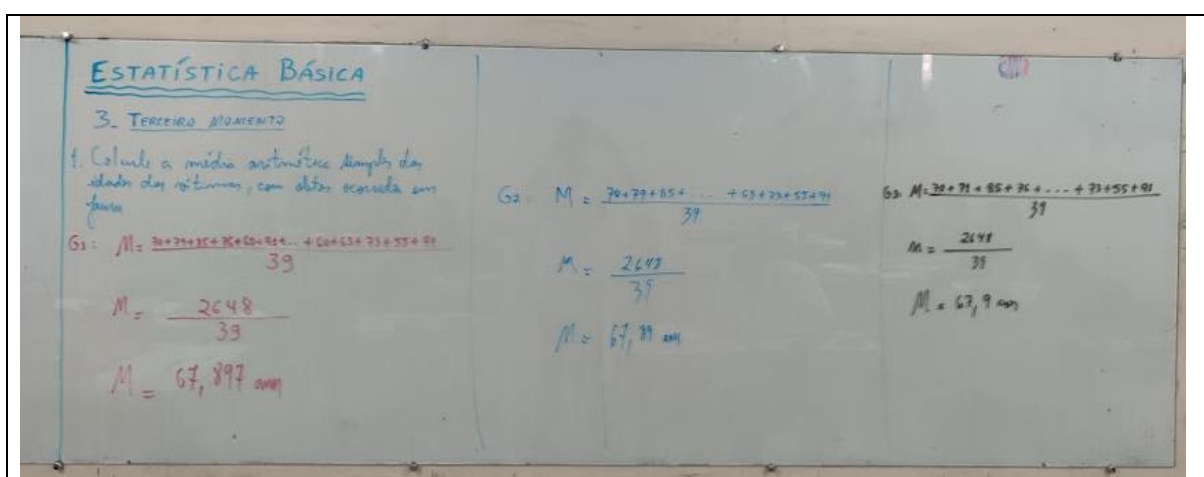 ESTATÍSTICA BÁSICA
3_ TERCEIRO MOMENTO
1. Calcule a média aritmética simples das
idades das vítimas, com óbitos ocorridos em
G1: M = 70+79+85+76+60+93+... +60+63+73+55+91
39
M = 2648
39
M = 67,897 anos
G2: M = 70+79+85+ ... +63+73+55+91
39
M = 2648
39
M = 67,89 anos
M = 70+79+85+76+...+73+55+91
39
M = 2648
39
M = 67,9 anos